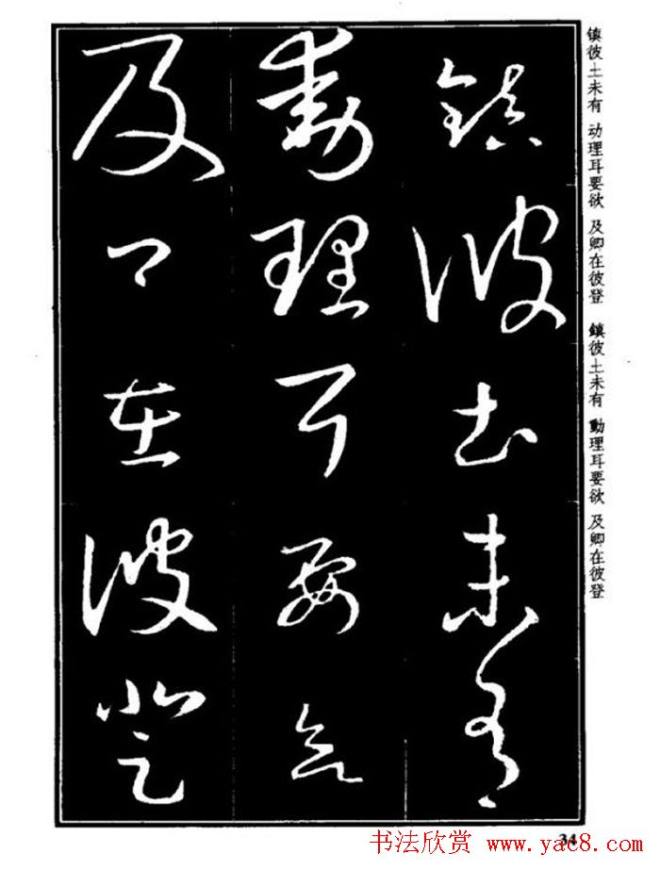 鎮彼土未有
動理耳要欲
及卿在彼登
镇彼土未有 动理耳要欲 及卿在彼登
鎮彼土未有 動理耳要欲 及卿在彼登
34
书法欣赏 www.yac8.com